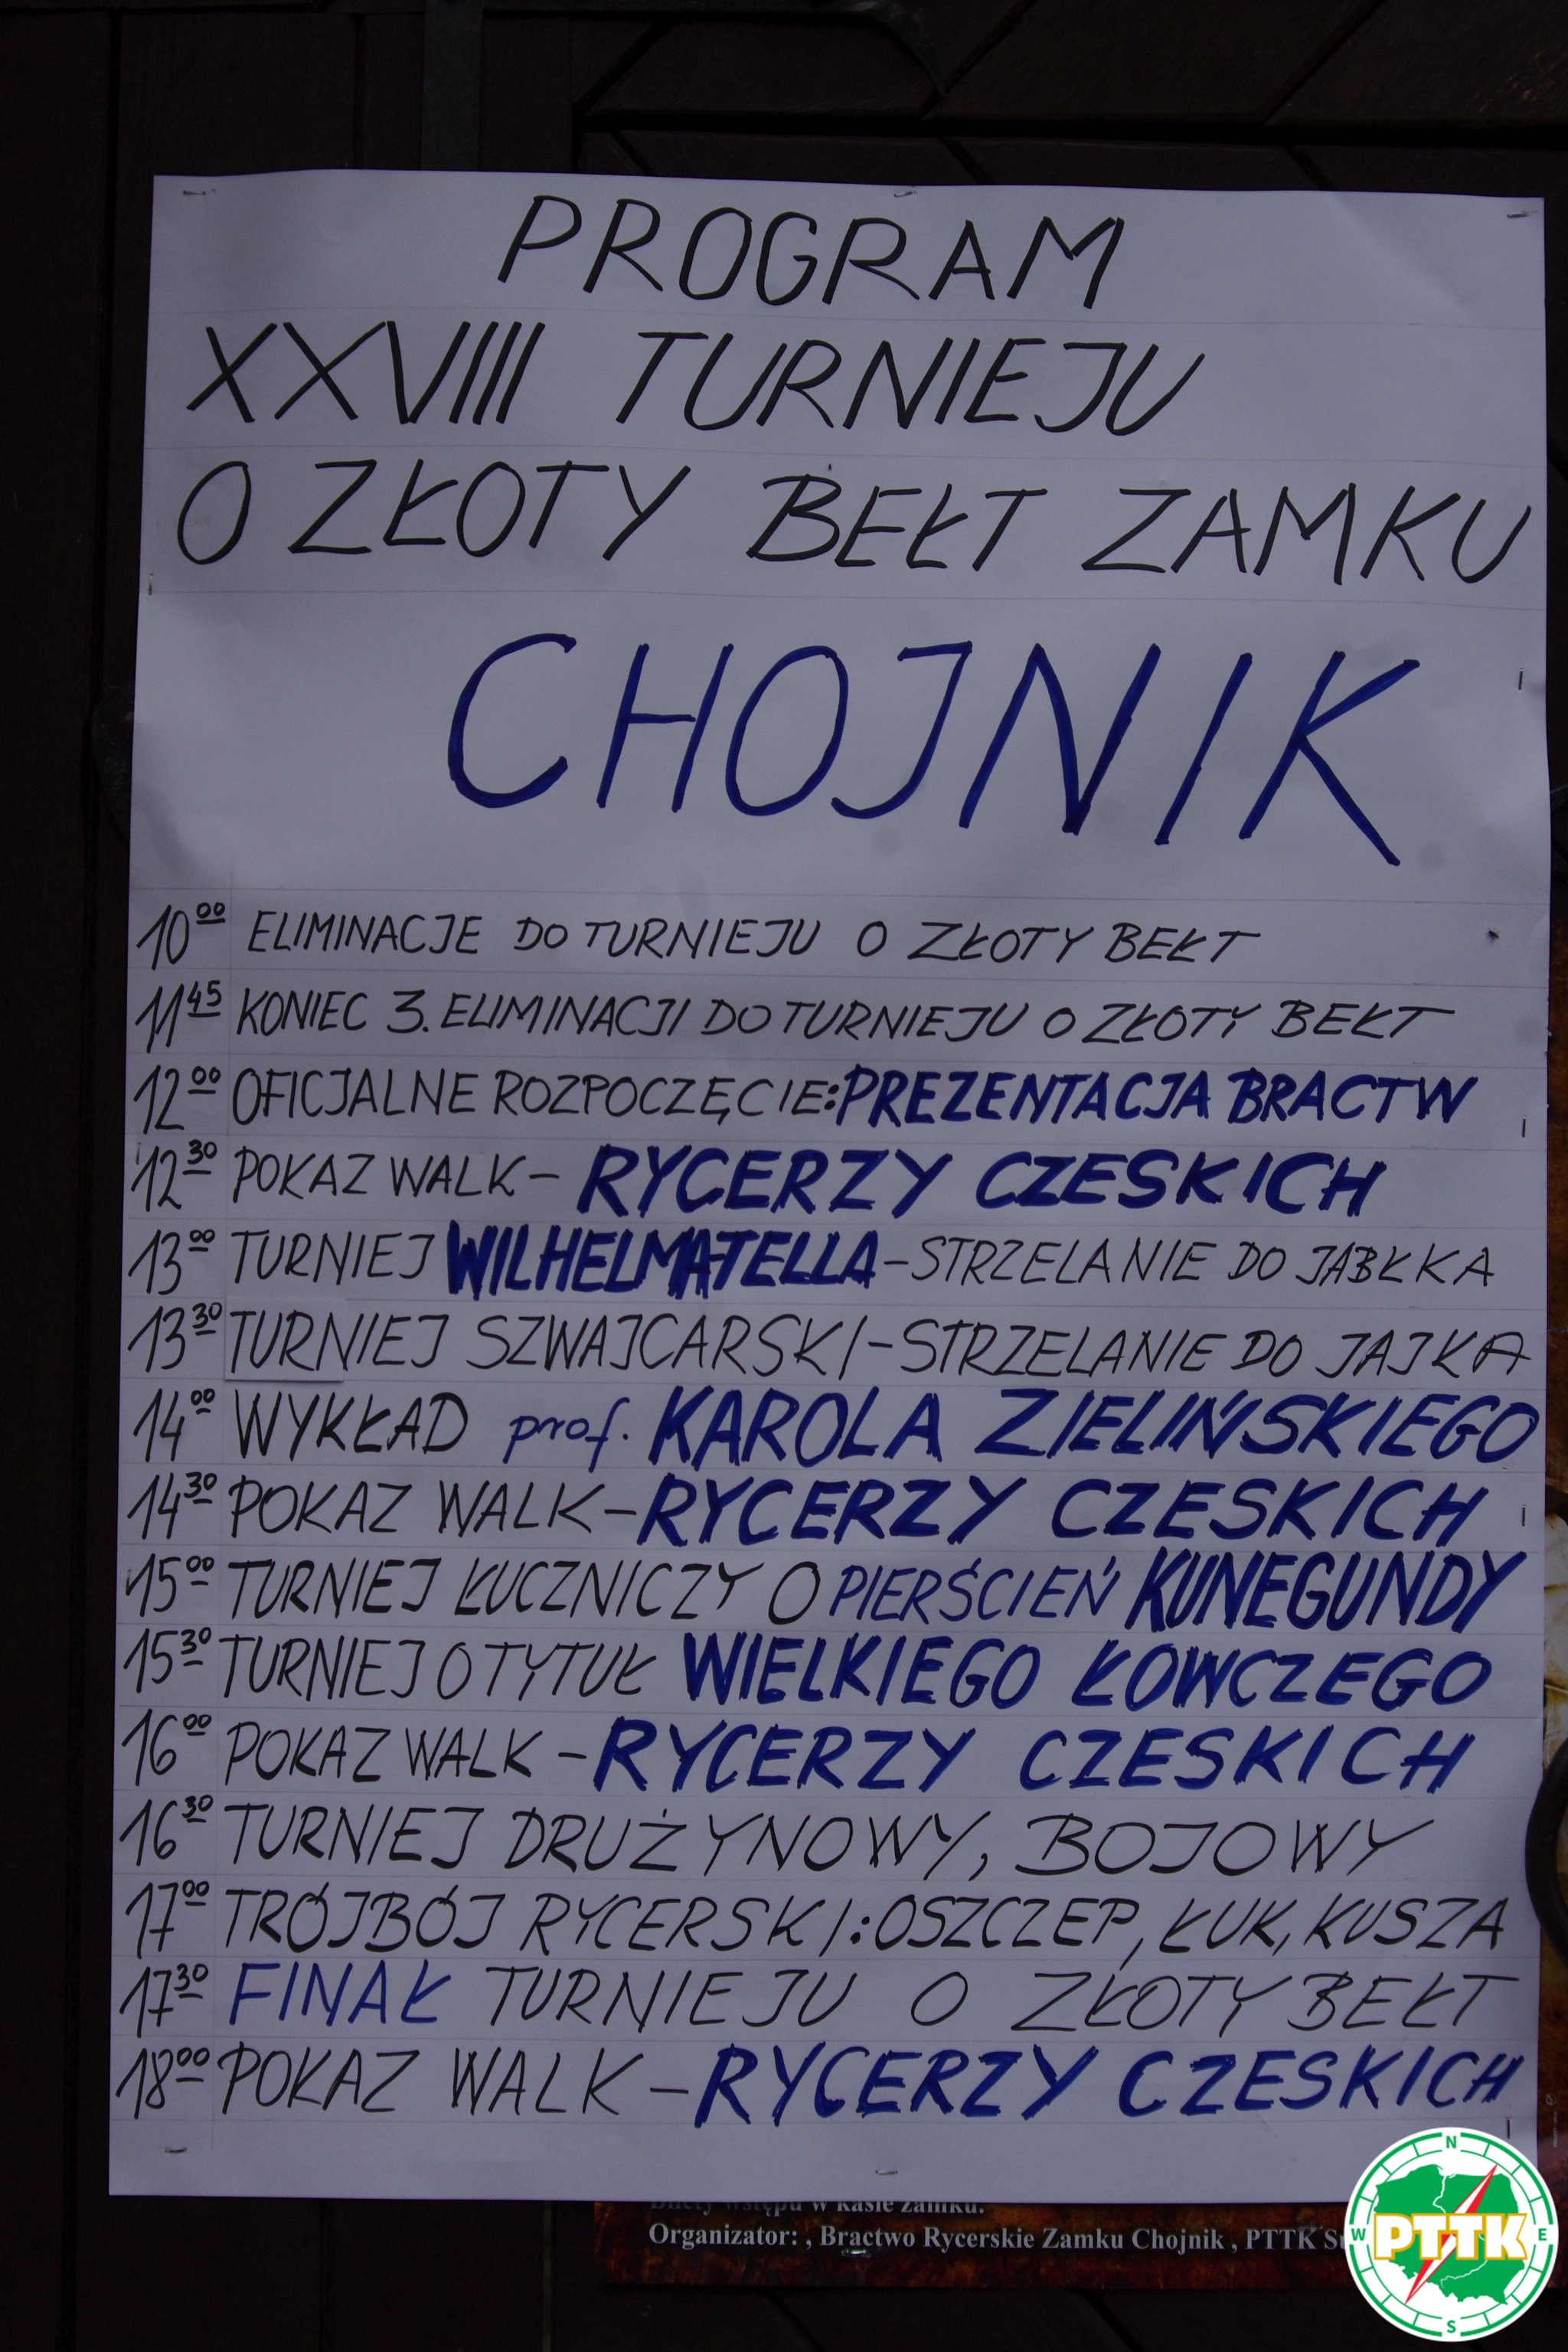 PROGRAM
XXVIII TURNIEJU
O ZŁOTY BEŁT ZAMKU
CHOJNIK
10⁰⁰ ELIMINACJE DO TURNIEJU O ZŁOTY BEŁT
11⁴⁵ KONIEC 3. ELIMINACJI DO TURNIEJU O ZŁOTY BEŁT
12⁰⁰ OFICJALNE ROZPOCZĘCIE: PREZENTACJA BRACTW
12³⁰ POKAZ WALK – RYCERZY CZESKICH
13⁰⁰ TURNIEJ WILHELMA TELLA – STRZELANIE DO JABŁKA
13³⁰ TURNIEJ SZWAJCARSKI – STRZELANIE DO JAJKA
14⁰⁰ WYKŁAD prof. KAROLA ZIELIŃSKIEGO
14³⁰ POKAZ WALK – RYCERZY CZESKICH
15⁰⁰ TURNIEJ ŁUCZNICZY O PIERŚCIEŃ KUNEGUNDY
15³⁰ TURNIEJ O TYTUŁ WIELKIEGO ŁOWCZEGO
16⁰⁰ POKAZ WALK – RYCERZY CZESKICH
16³⁰ TURNIEJ DRUŻYNOWY, BOJOWY
17⁰⁰ TRÓJBÓJ RYCERSKI: OSZCZEP, ŁUK, KUSZA
17³⁰ FINAŁ TURNIEJU O ZŁOTY BEŁT
18⁰⁰ POKAZ WALK – RYCERZY CZESKICH
Bilety wstępu w kasie zamku.
Organizator: , Bractwo Rycerskie Zamku Chojnik , PTTK
N
W PTTK E
S